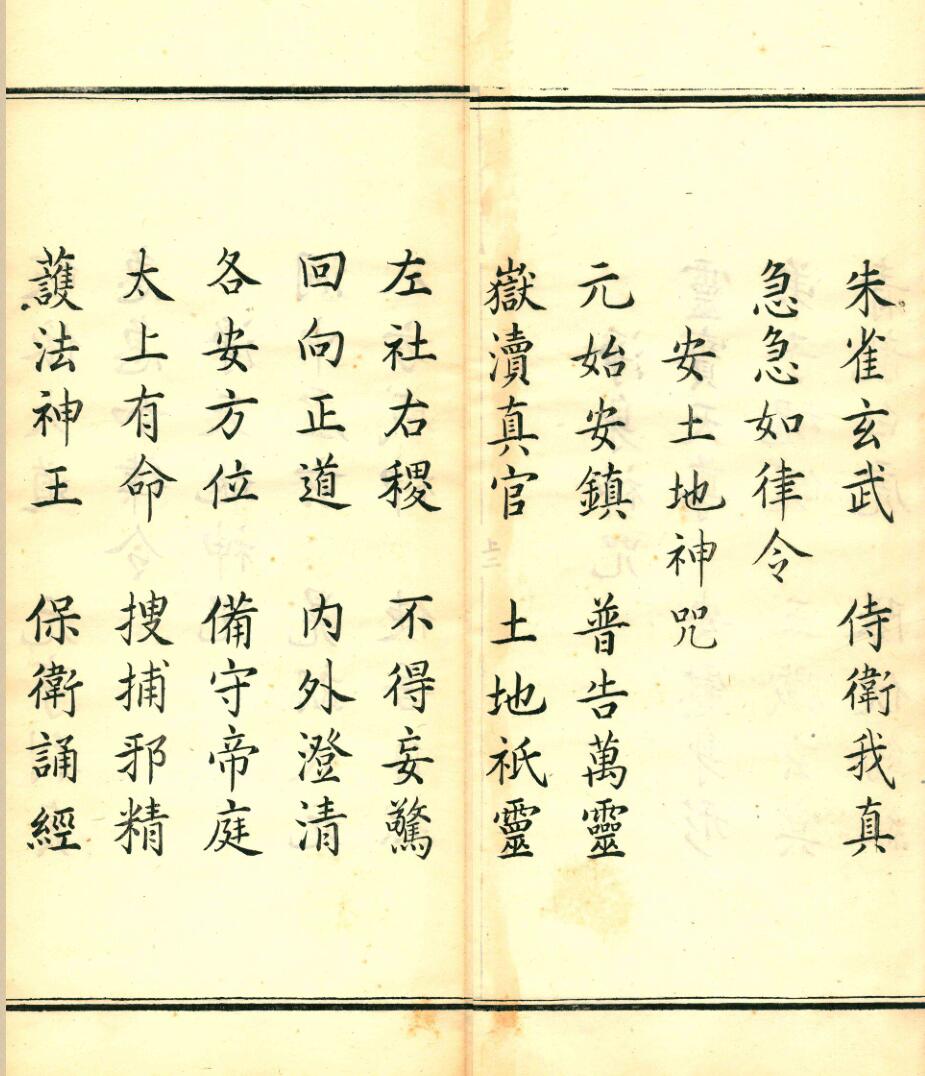 朱雀玄武　侍衛我真
急急如律令
安土地神咒
元始安鎮　普告萬靈
嶽瀆真官　土地祇靈
左社右稷　不得妄驚
回向正道　内外澄清
各安方位　備守帝庭
太上有命　搜捕邪精
護法神王　保衛誦經